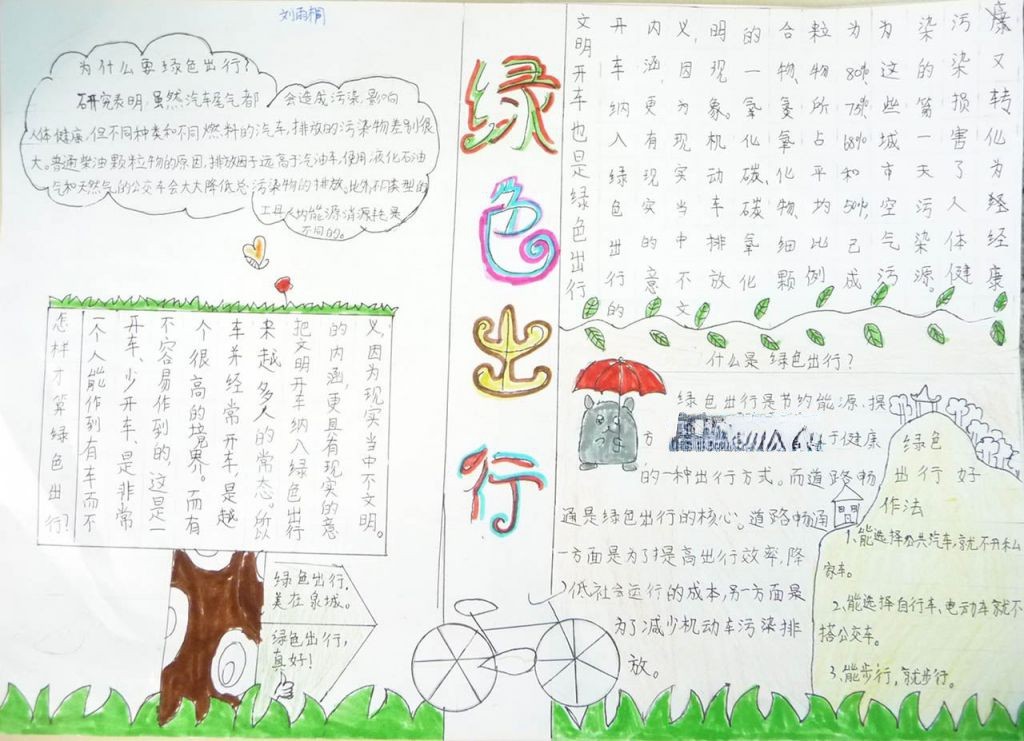 刘雨桐
为什么要绿色出行?
研究表明,虽然汽车尾气都会造成污染,影响
人体健康,但不同种类和不同燃料的汽车,排放的污染物差别很
大。普通柴油颗粒物的原因,排放因子远高于汽油车,使用液化石油
气和天然气的公交车会大大降低总污染物的排放。此外,不同类型的
工具人均能源消源耗是
不同的。
怎样才算绿色出行?
一个人能作到有车而不
开车、少开车、是非常
不容易作到的,这是一
个很高的境界。而有
车并经常开车,是越
来越多人的常态。所以
把文明开车纳入绿色出行
的内涵,更且有现实的意
义,因为现实当中不文明。
绿色出行,
美在泉城。
绿色出行,
真好!
绿色出行
文明开车也是绿色出行
开车纳入绿色出行的
内涵,更有现实的意
义,因为现实当中不文
明现象。机动车排放
的一氧化碳、碳氧化
合物、氮氧化物、细颗
粒物所占平均比例
为80%75%68%和50%,已成
为这些城市空气污
染的第一天污染源。
污染损害了人体健
康又转化为经经康
什么是绿色出行?
绿色出行是节约能源、提
方
于健康
的一种出行方式。而道路畅
通是绿色出行的核心。道路畅通
一方面是为了提高出行效率,降
低社会运行的成本,另一方面是
为了减少机动车污染排
放。
绿色
出行好
作法
1、能选择公共汽车,就不开私
家车。
2、能选择自行车、电动车就不
搭公交车。
3、能步行,就步行。